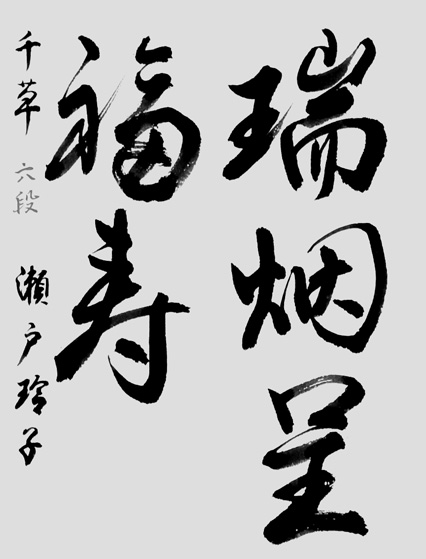 瑞烟呈
福寿
千草 六段 瀬戸玲子